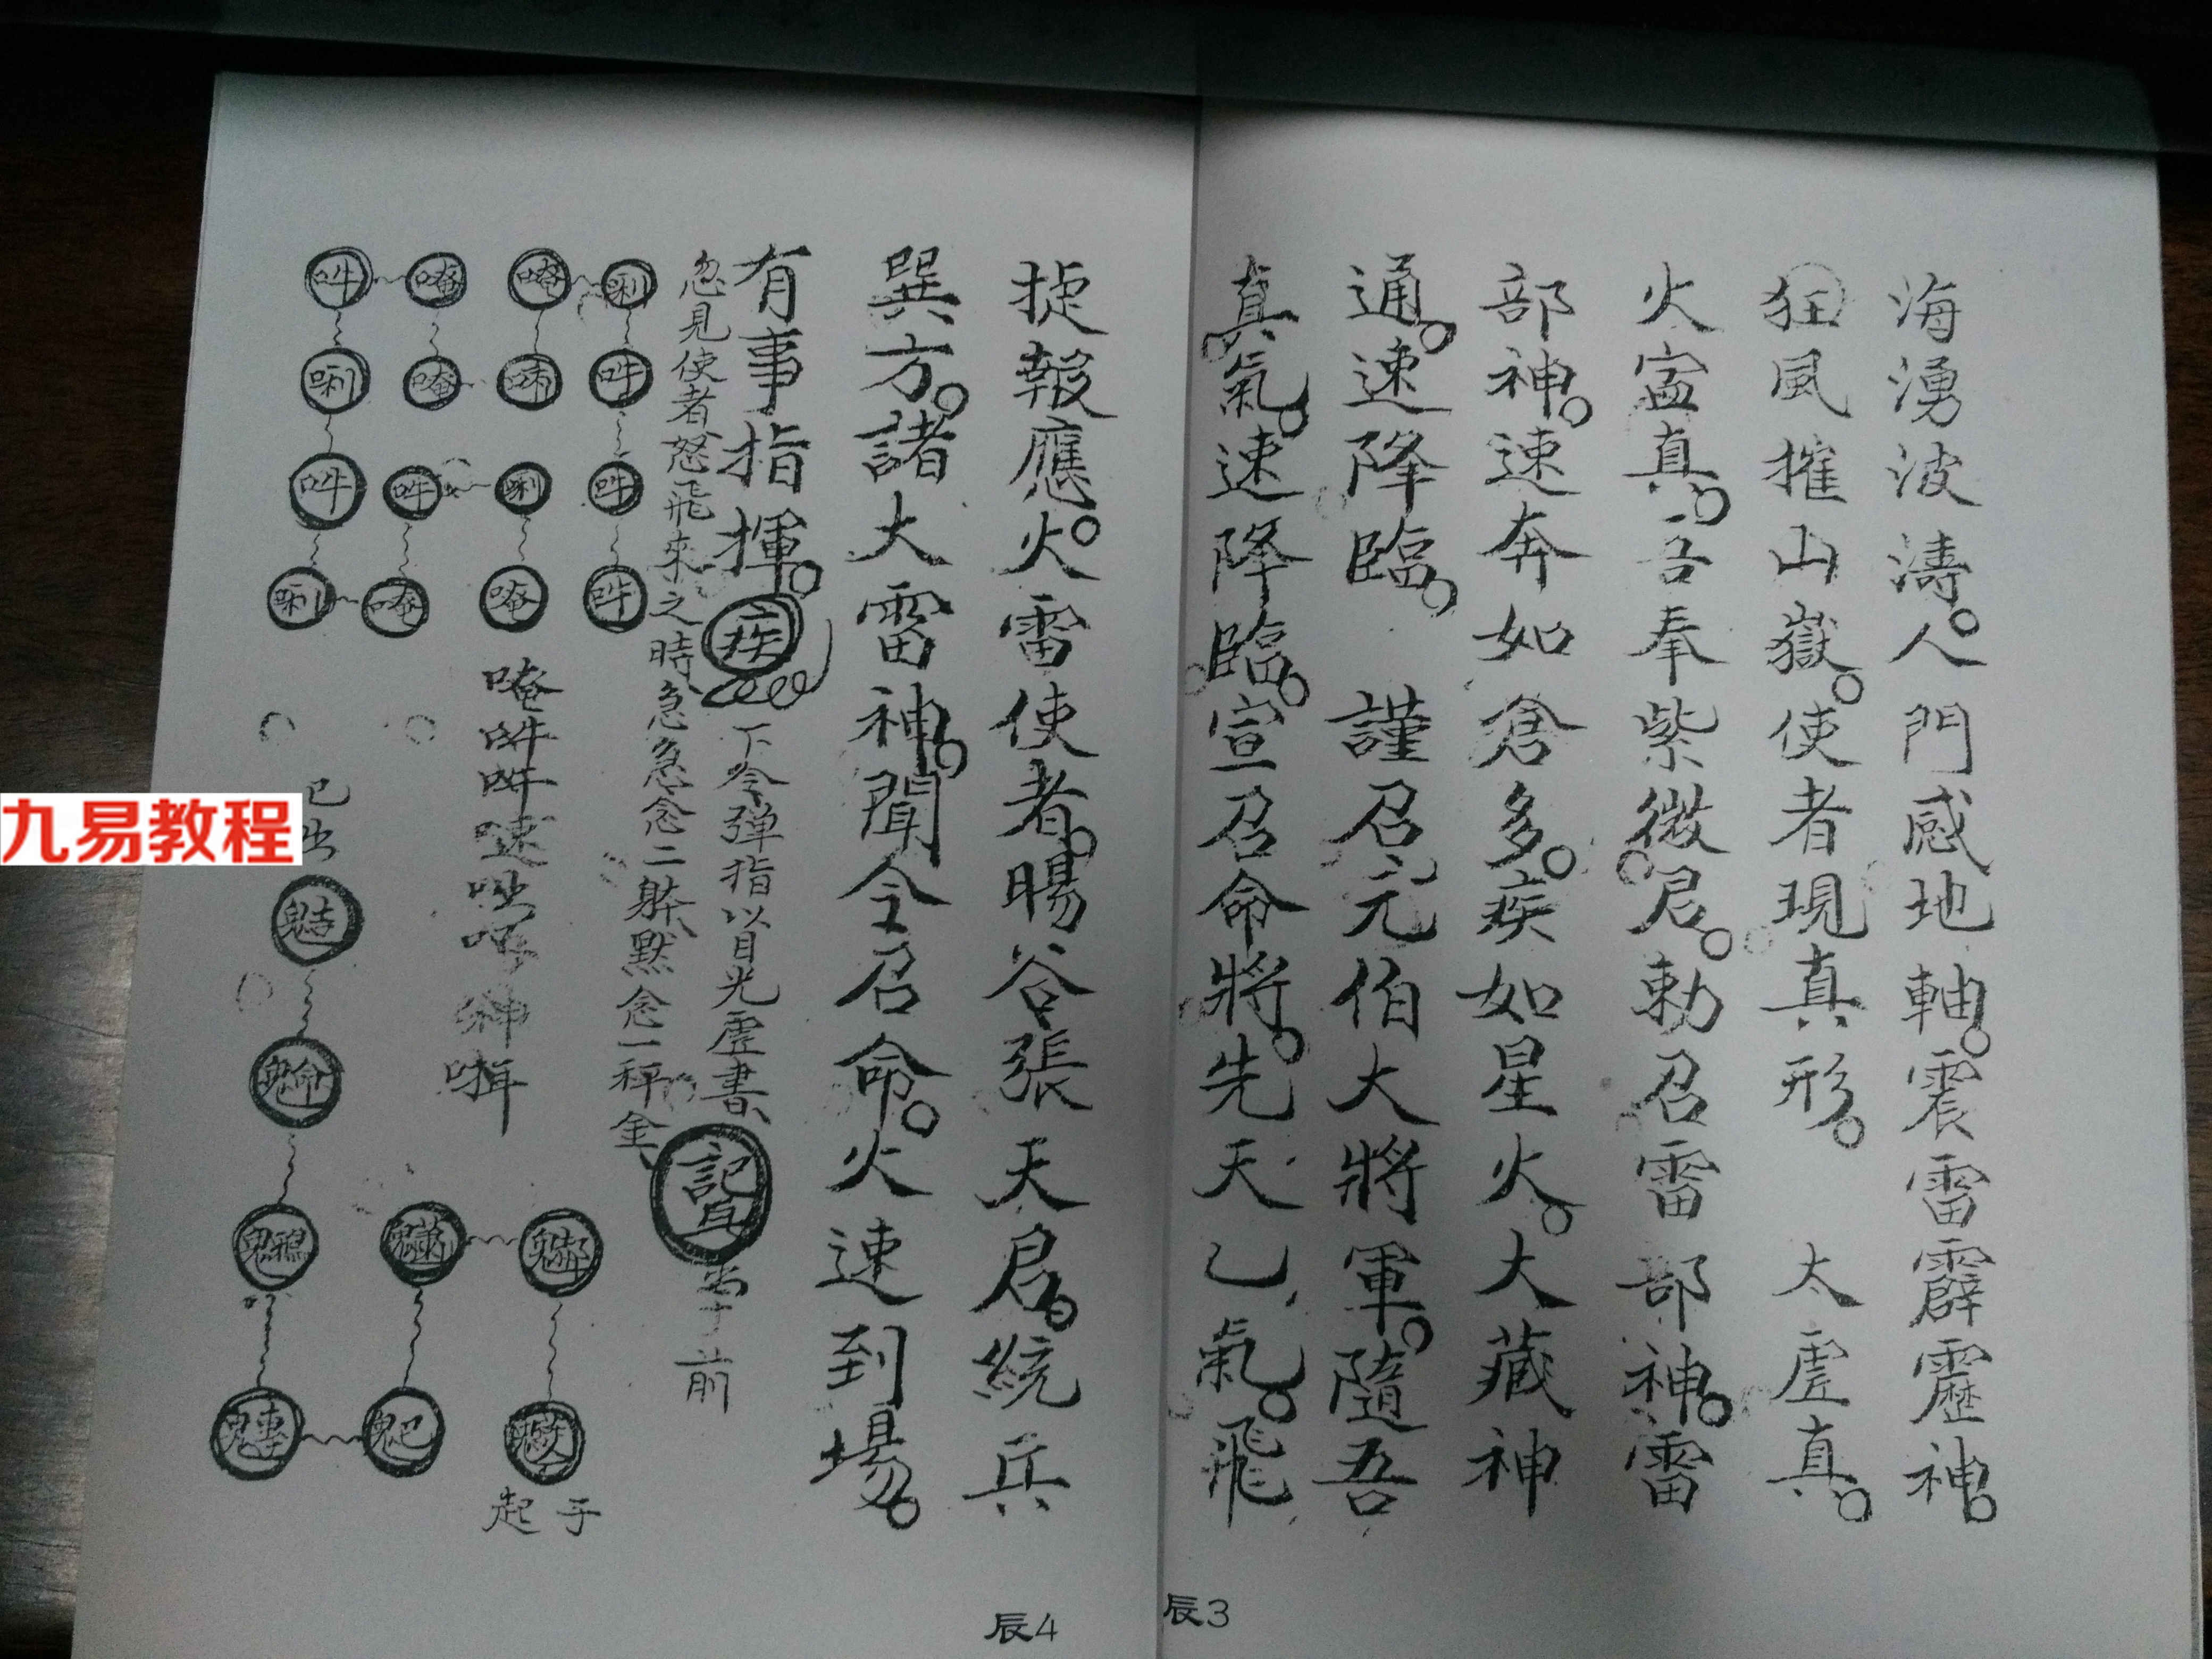 海湧波濤人門感地軸震雷霹靂神
狂風摧山嶽使者現真形 太虛真
火寍真吾奉紫微君勅召雷部神雷
部神速奔如倉多疾如星火大藏神
通速降臨 謹召元伯大將軍隨吾
真氣速降臨宣召命將先天乙氣飛
辰3
捷報應火雷使者暘谷張天君統兵
巽方諸大雷神聞令召命火速到場
有事指揮疾
下令弹指以目光虛書
前
忽見使者怒飛來之時急急念二躰默念一秤金
唎 吽 吽 吽
唵 唏 唎 唵
唵 唵 吽 唵
吽 唎 吽 唎
唵吽吽速
起于
九易教程
辰4